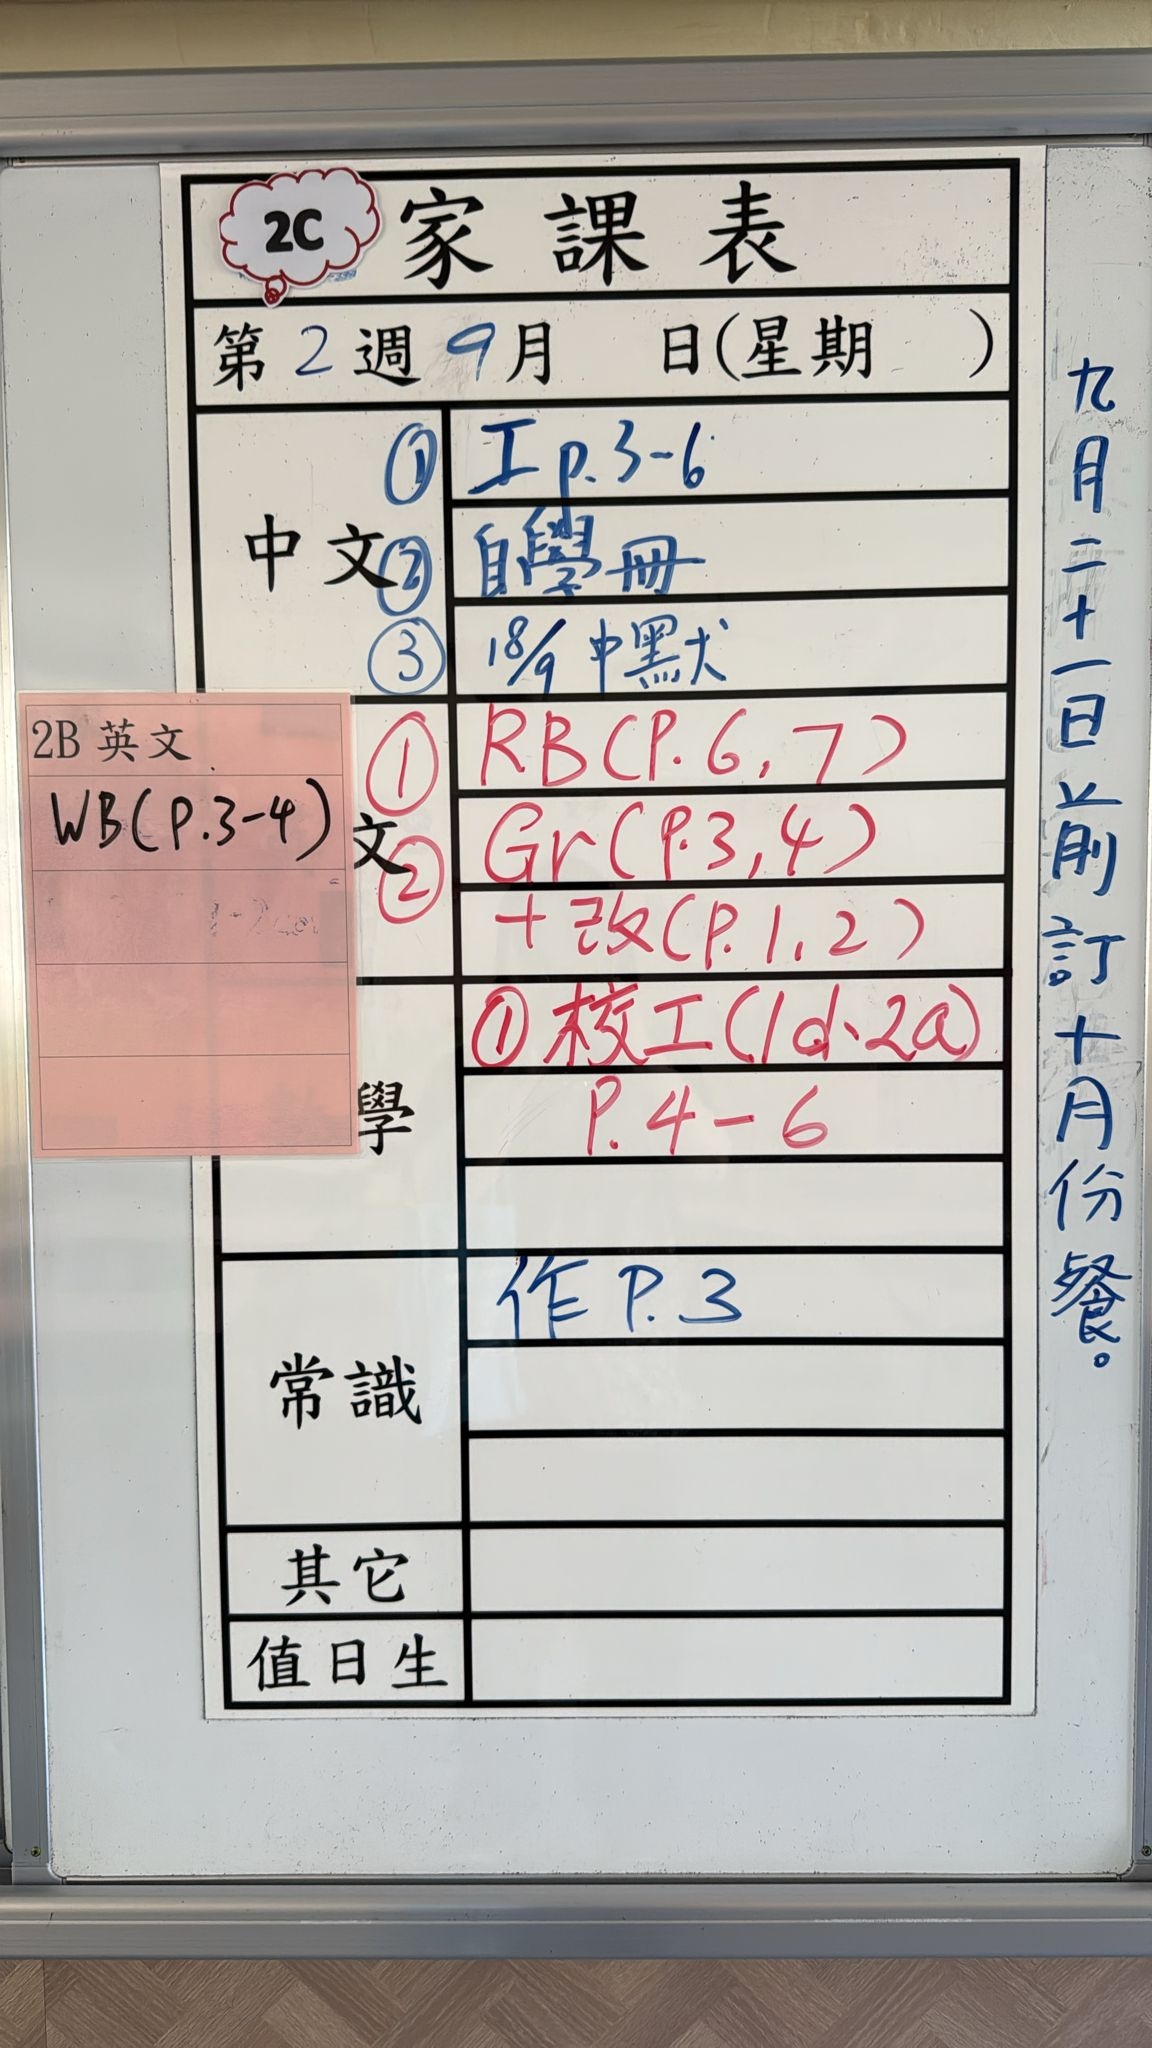 2C 家課表
第2週 9月 日(星期 )
中文
① 工 p.3-6
② 自學冊
③ 18/9 中默
文
① RB(P.6,7)
② Gr(P.3,4)
+改(P.1,2)
學
① 校工(1d、2a)
P.4-6
常識
作 P.3
其它
值日生
2B 英文
WB(P.3-4)
九月二十一日前訂十月份餐。